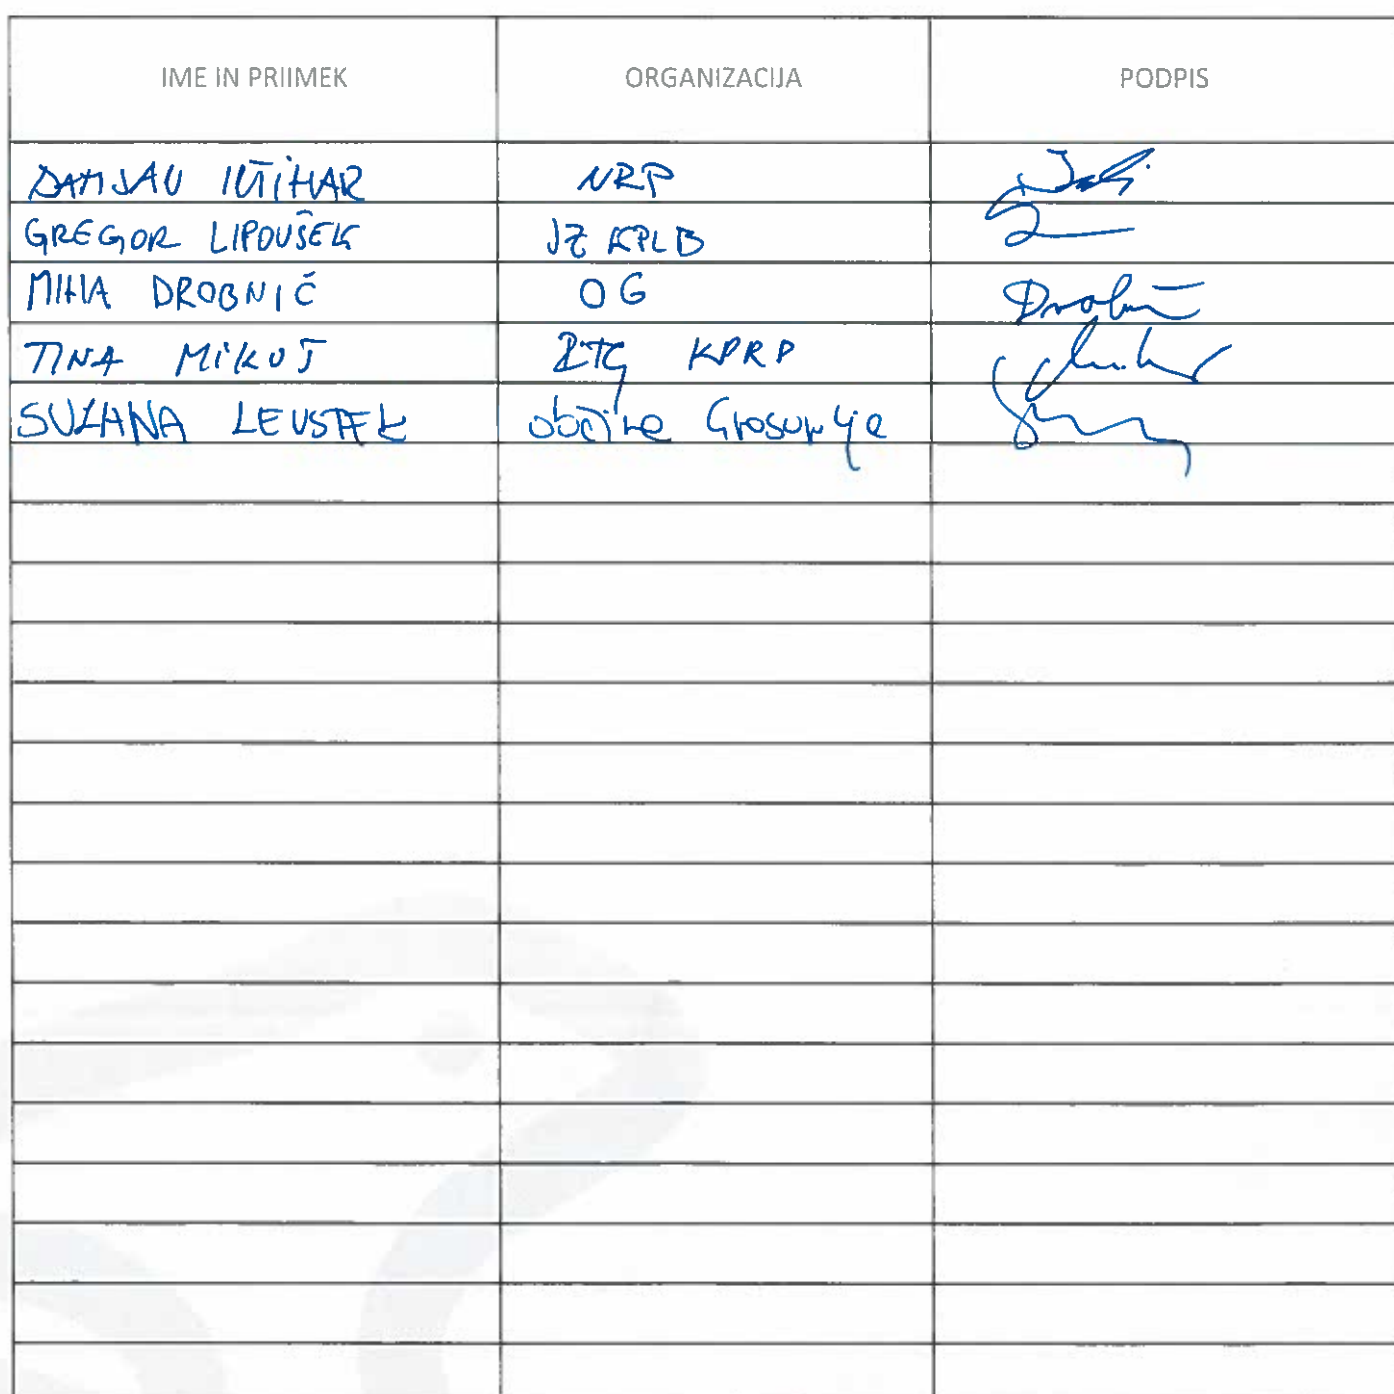 IME IN PRIIMEK ORGANIZACIJA PODPIS
DAMJAN NRP
GREGOR LIPOVŠEK JZ KPLB
MIHA DROBNIČ OG Drobnič
TINA MIKUŠ RTG KPRP
SUZANA LEVSTEK občine Grosuplje